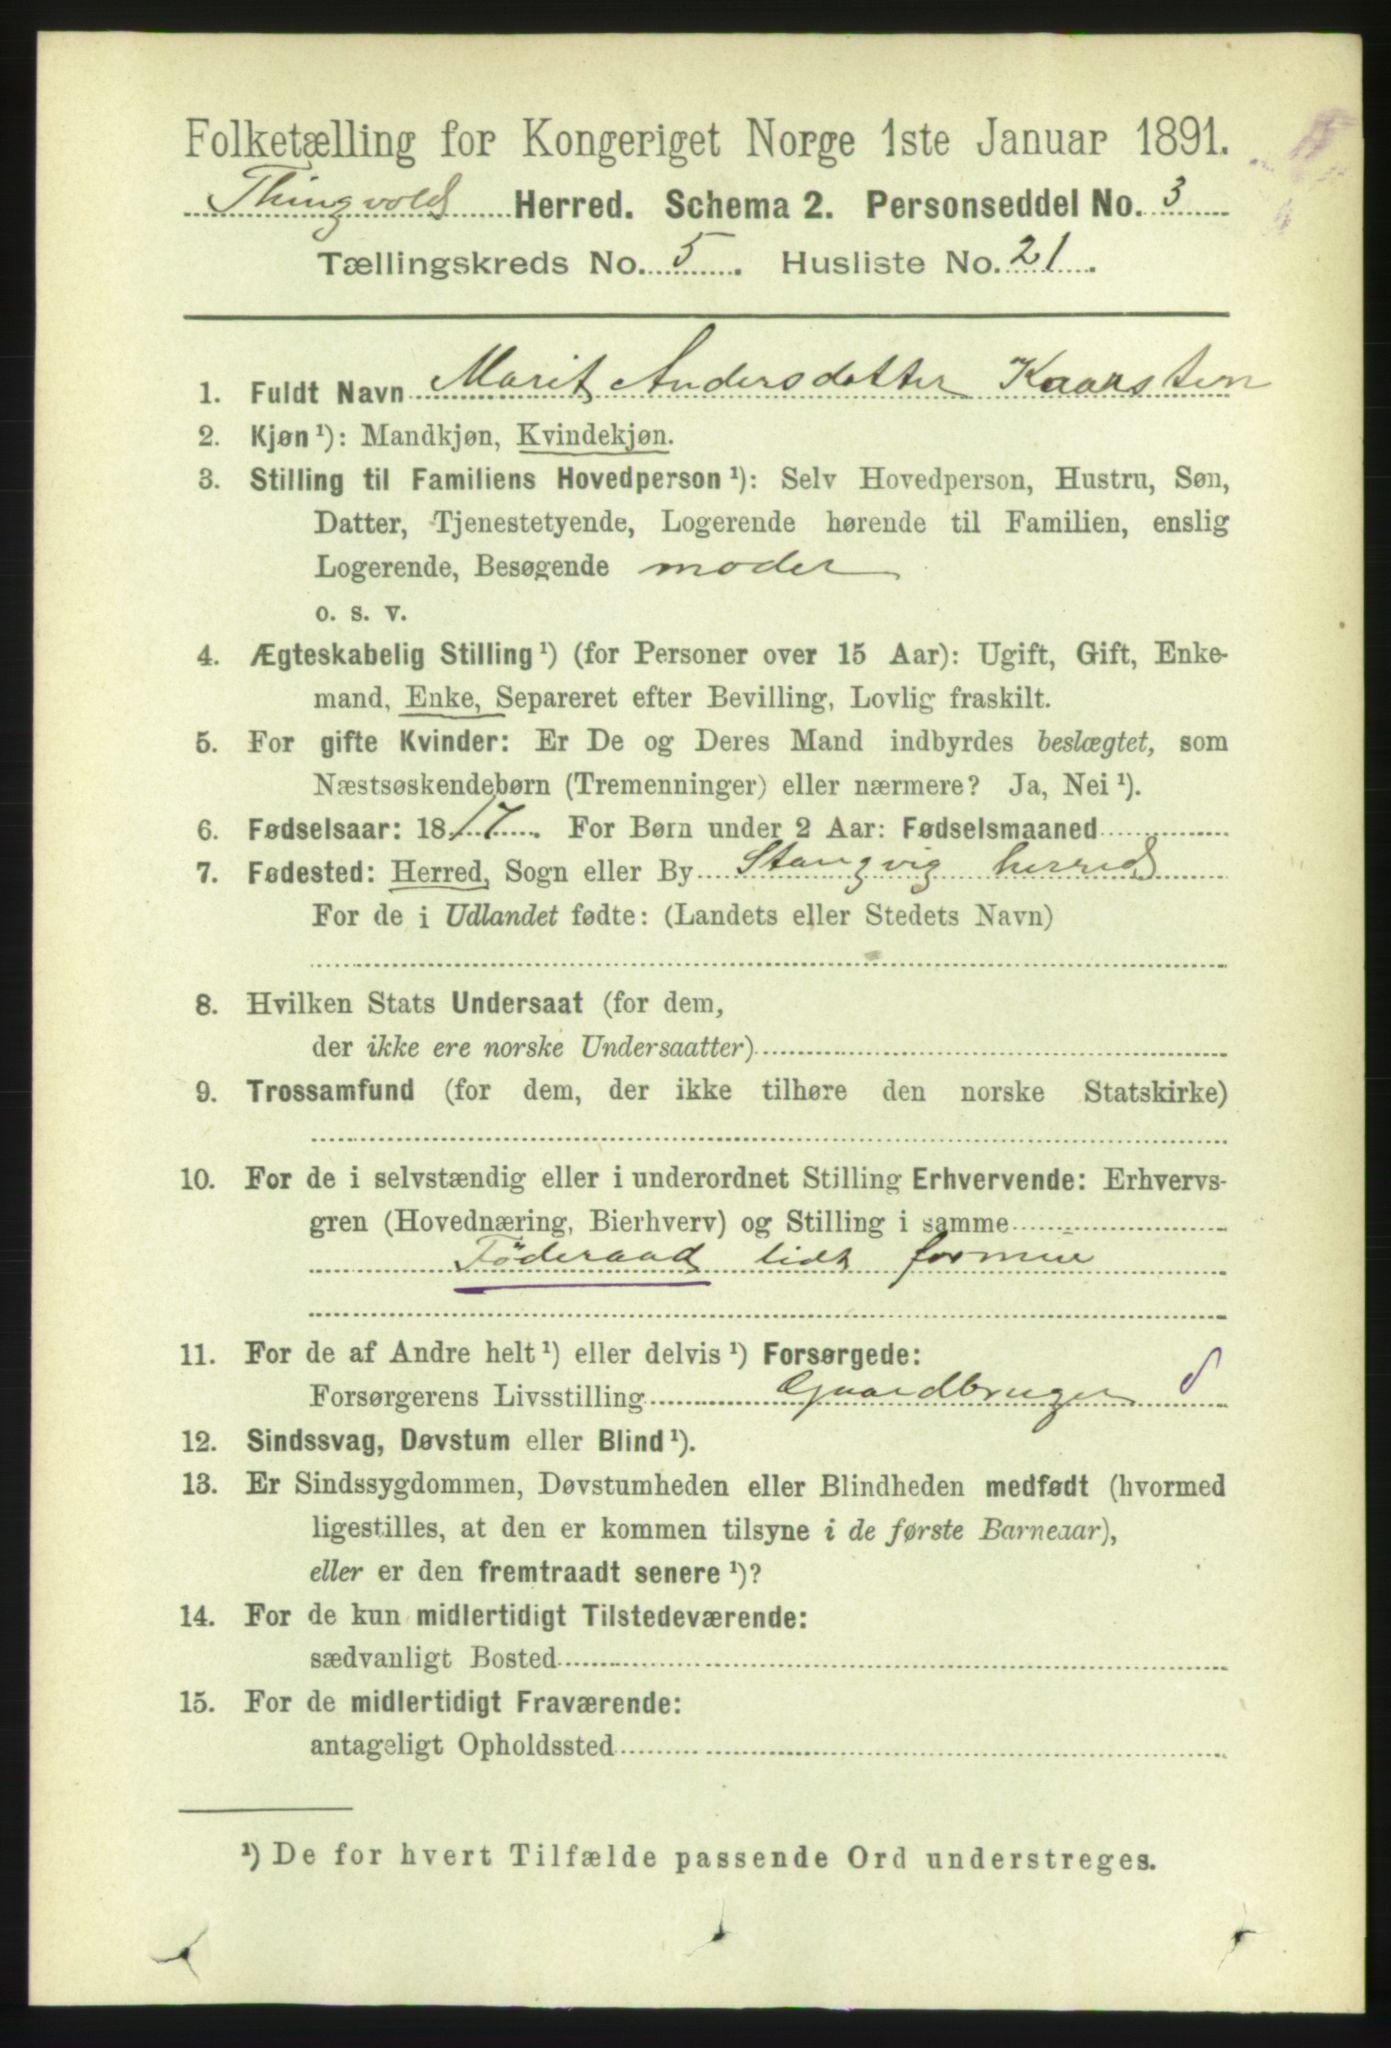 Folketælling for Kongeriget Norge 1ste Januar 1891.
Thingvold Herred. Schema 2. Personseddel No. 3
Tællingskreds No. 5. Husliste No. 21.
1. Fuldt Navn Marit Andersdatter Kaarsten
2. Kjøn ¹): Mandkjøn, Kvindekjøn.
3. Stilling til Familiens Hovedperson ¹): Selv Hovedperson, Hustru, Søn,
Datter, Tjenestetyende, Logerende hørende til Familien, enslig
Logerende, Besøgende moder
o. s. v.
4. Ægteskabelig Stilling ¹) (for Personer over 15 Aar): Ugift, Gift, Enke-
mand, Enke, Separeret efter Bevilling, Lovlig fraskilt.
5. For gifte Kvinder: Er De og Deres Mand indbyrdes beslægtet, som
Næstsøskendebørn (Tremenninger) eller nærmere? Ja, Nei ¹).
6. Fødselsaar: 1817. For Børn under 2 Aar: Fødselsmaaned
7. Fødested: Herred, Sogn eller By Stangvig herred
For de i Udlandet fødte: (Landets eller Stedets Navn)
8. Hvilken Stats Undersaat (for dem,
der ikke ere norske Undersaatter)
9. Trossamfund (for dem, der ikke tilhøre den norske Statskirke)
10. For de i selvstændig eller i underordnet Stilling Erhvervende: Erhvervs-
gren (Hovednæring, Bierhverv) og Stilling i samme
Föderaad lidt formue
11. For de af Andre helt ¹) eller delvis ¹) Forsørgede:
Forsørgerens Livsstilling Gaardbruger
12. Sindssvag, Døvstum eller Blind ¹).
13. Er Sindssygdommen, Døvstumheden eller Blindheden medfødt (hvormed
ligestilles, at den er kommen tilsyne i de første Barneaar),
eller er den fremtraadt senere ¹)?
14. For de kun midlertidigt Tilstedeværende:
sædvanligt Bosted
15. For de midlertidigt Fraværende:
antageligt Opholdssted
¹) De for hvert Tilfælde passende Ord understreges.